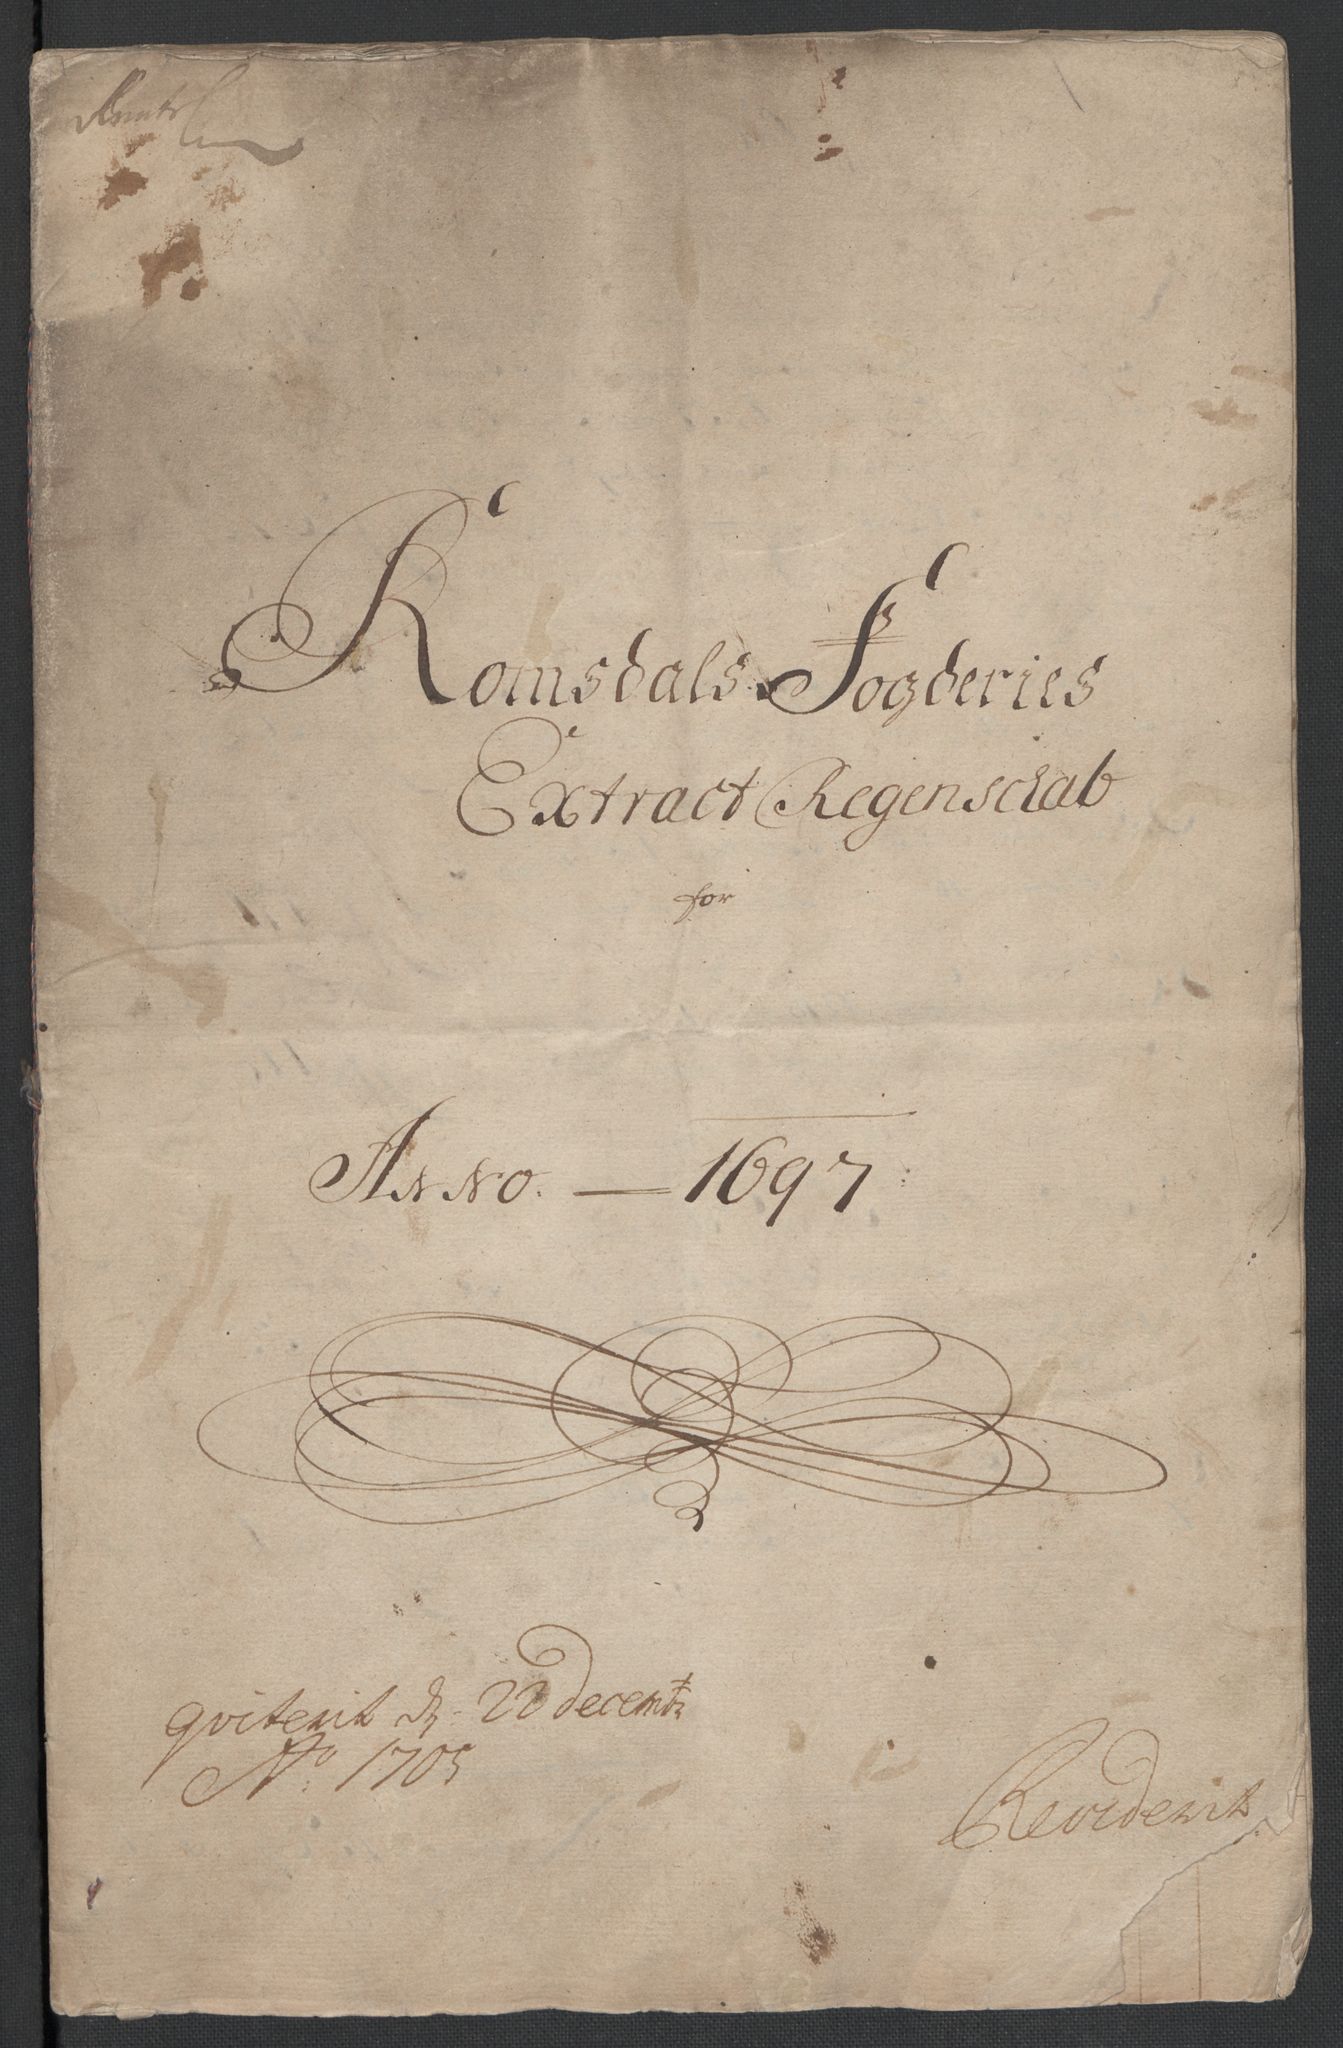 Romsdals Fogderies
Extract Regenschab
for
Anno. — 1697
qviterit d. 22 decembr
Ao. 1705
Reviderit